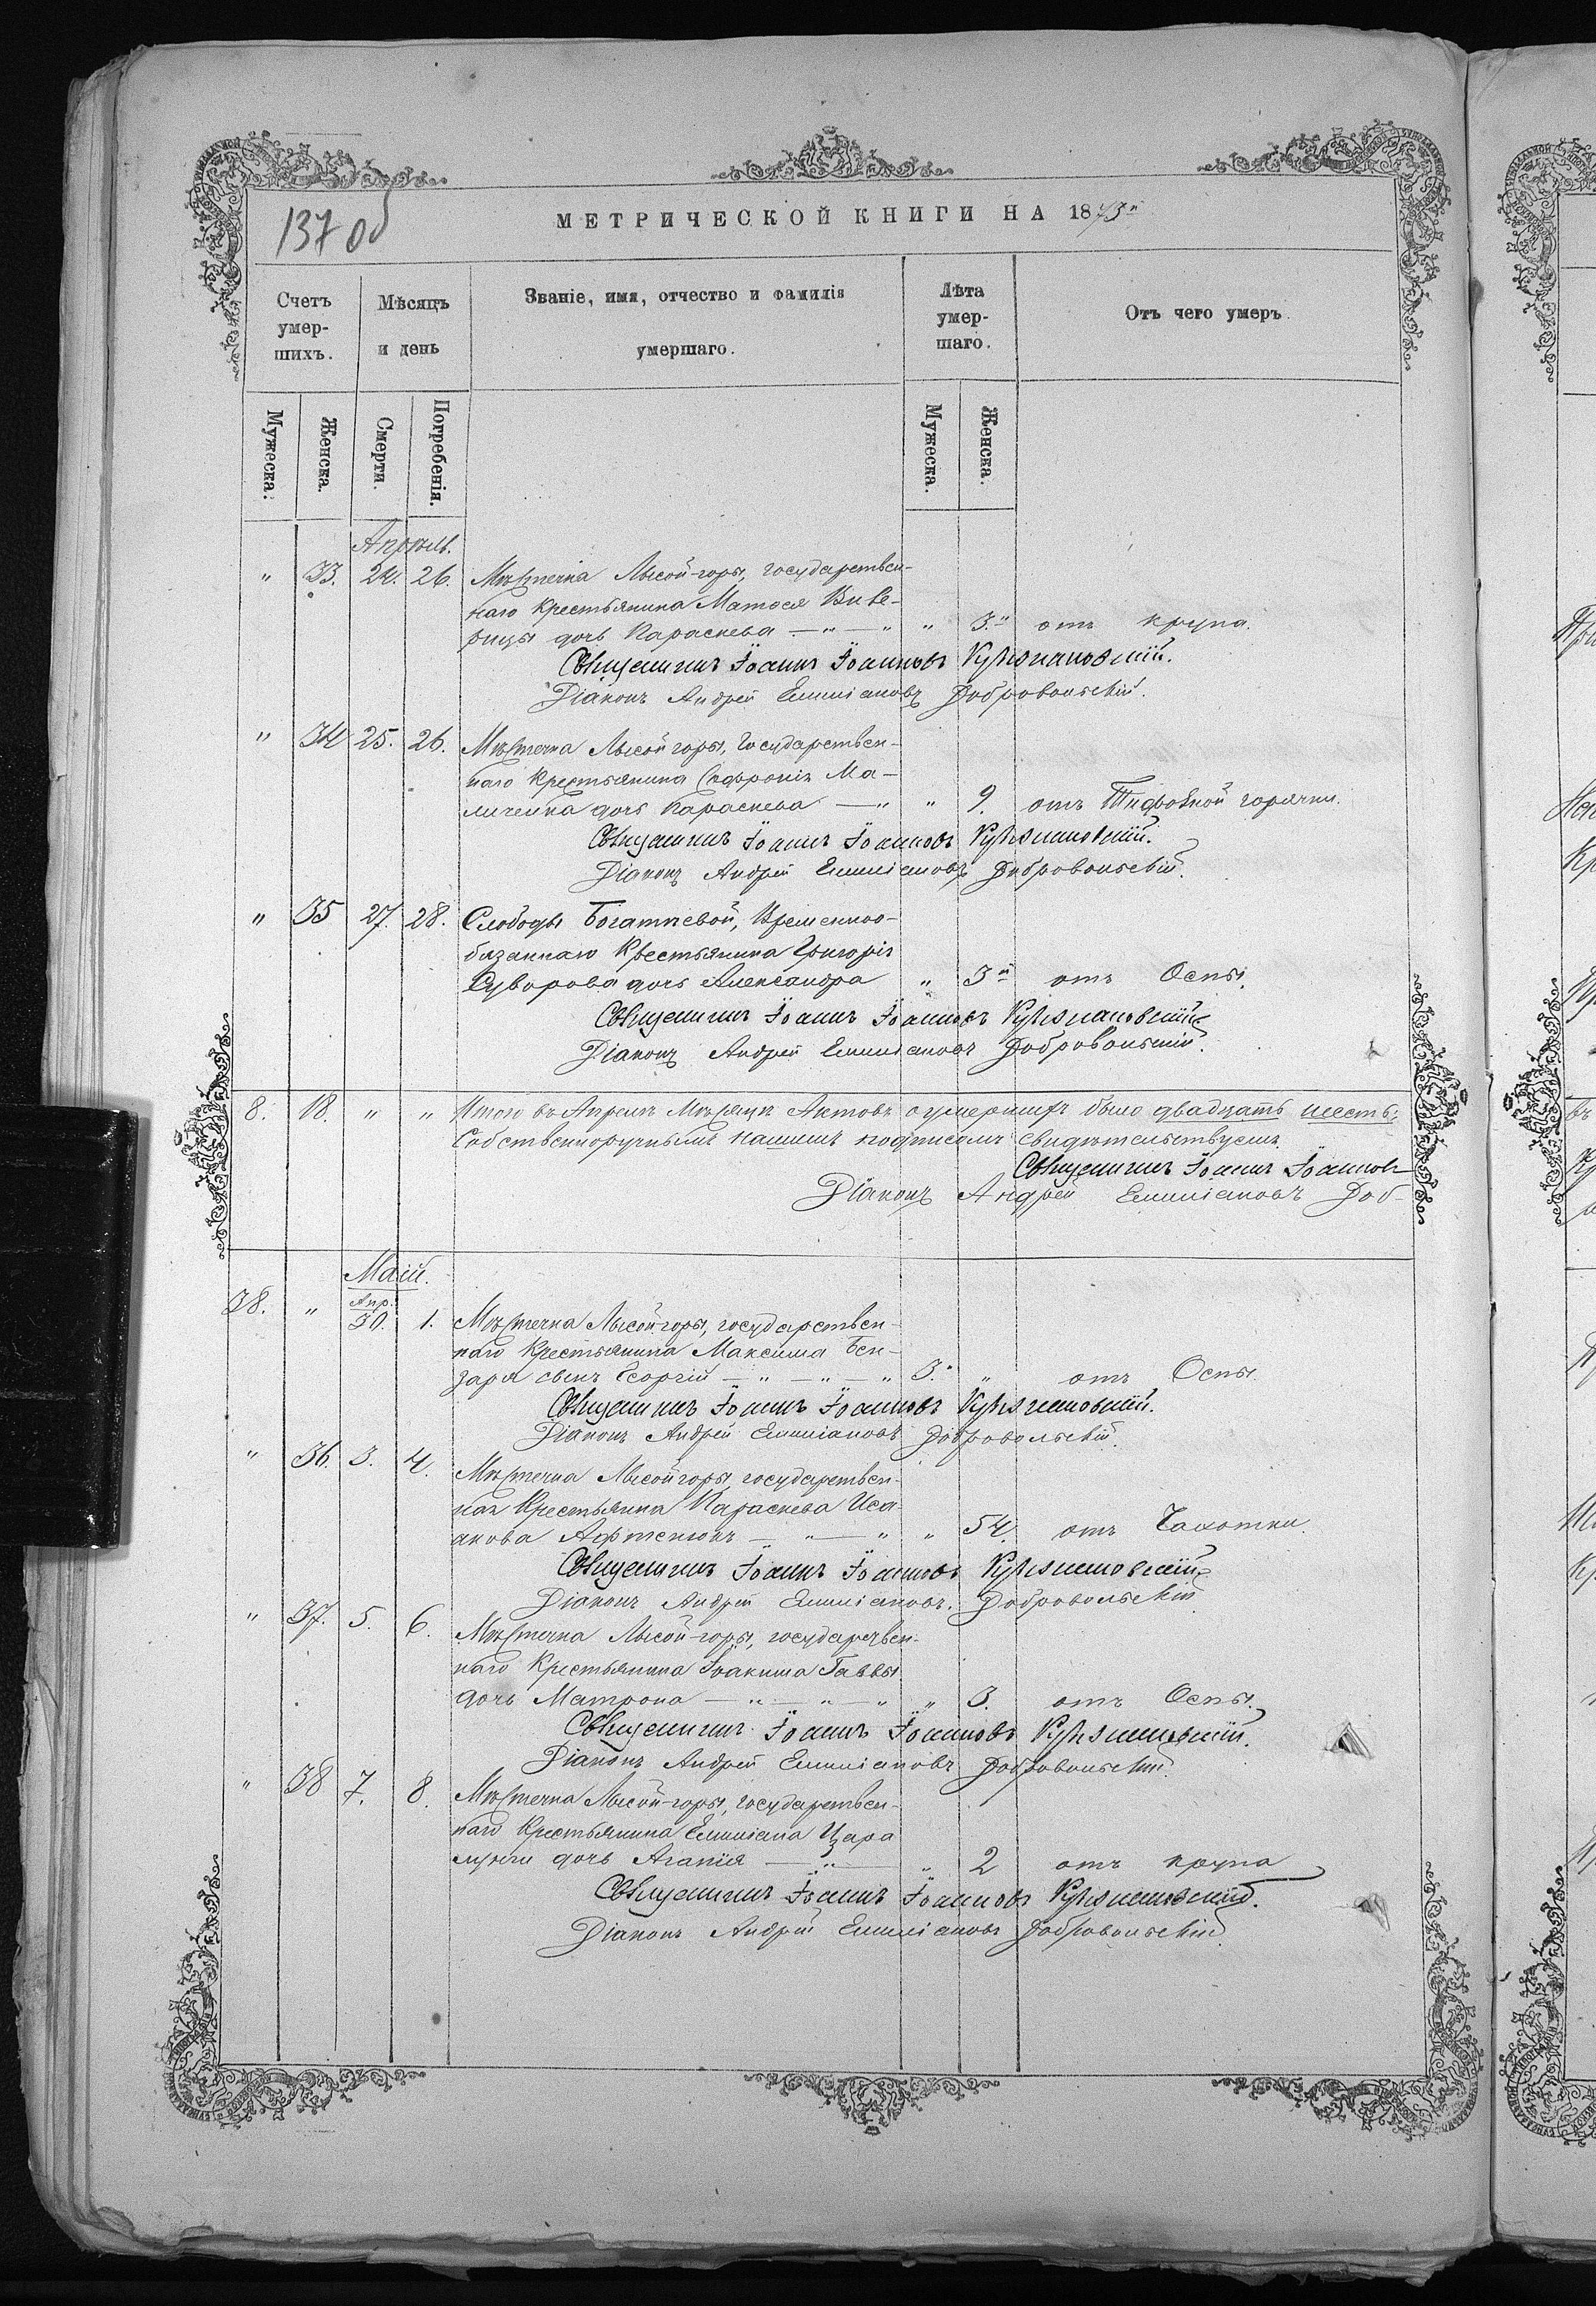 137 об
МЕТРИЧЕСКОЙ КНИГИ НА 1875
Счетъ умер-шихъ.
Мѣсяцъ и день
Званіе, имя, отчество и фамилія умершаго.
Лѣта умер-шаго.
Отъ чего умеръ
Мужеска.
Женска.
Смерти.
Погребенія.
Мужеска.
Женска.
Апрѣль.
" 33. 24. 26. Мѣстечка Лысой-горы, государствен-
наго крестьянина Матѳея Виве-
рицы дочь Параскева — " — " " 3. отъ крупа.
Священникъ Іоаннъ Іоанновъ
Діаконъ Андрей Емиліановъ Добровольскій.
" 34 25. 26. Мѣстечка Лысой горы, Государствен-
наго Крестьянина Софронія Ма-
личенка дочь Параскева — " " 9. отъ Тифозной горячки.
Священникъ Іоаннъ Іоанновъ
Діаконъ Андрей Емиліановъ Добровольскій.
" 35 27. 28. Слободы Богаткевой, Временноо-
бязаннаго Крестьянина Григорія
Суворова дочь Александра " 3 отъ Оспы.
Священникъ Іоаннъ Іоанновъ
Діаконъ Андрей Емиліановъ Добровольскій.
8. 18. " " Итого въ Апрелѣ Мѣсяцѣ Актовъ о умершихъ было двадцать шесть;
Собственноручнымъ нашимъ подписомъ свидѣтельствуемъ
Священникъ Іоаннъ Іоанновъ
Діаконъ Андрей Емиліановъ Доб-
Маій.
38. " Апр. 30. 1. Мѣстечка Лысой горы, государствен-
наго Крестьянина Максима Бен-
заря сынъ Георгій — " — " — " 3. " отъ Оспы.
Священникъ Іоаннъ Іоанновъ
Діаконъ Андрей Емиліановъ Добровольскій.
" 36. 3. 4. Мѣстечка Лысой горы государствен-
ная Крестьянка Параскева Иса-
акова Афтенюкъ — " — " " 54. отъ Чахотки.
Священникъ Іоаннъ Іоанновъ
Діаконъ Андрей Емиліановъ. Добровольскій
" 37. 5. 6. Мѣстечка Лысой-горы, государствен-
наго Крестьянина Іоакима Гаввы
дочь Матрона — " — " — " " 3. отъ Оспы.
Священникъ Іоаннъ Іоанновъ
Діаконъ Андрей Емиліановъ Добровольскій.
" 38 7. 8. Мѣстечка Лысой-горы, государствен-
наго Крестьянина Емиліана Цара
дочь Агапія — " — " 2 отъ крупа
Священникъ Іоаннъ Іоанновъ
Діаконъ Андрей Емиліановъ Добровольскій